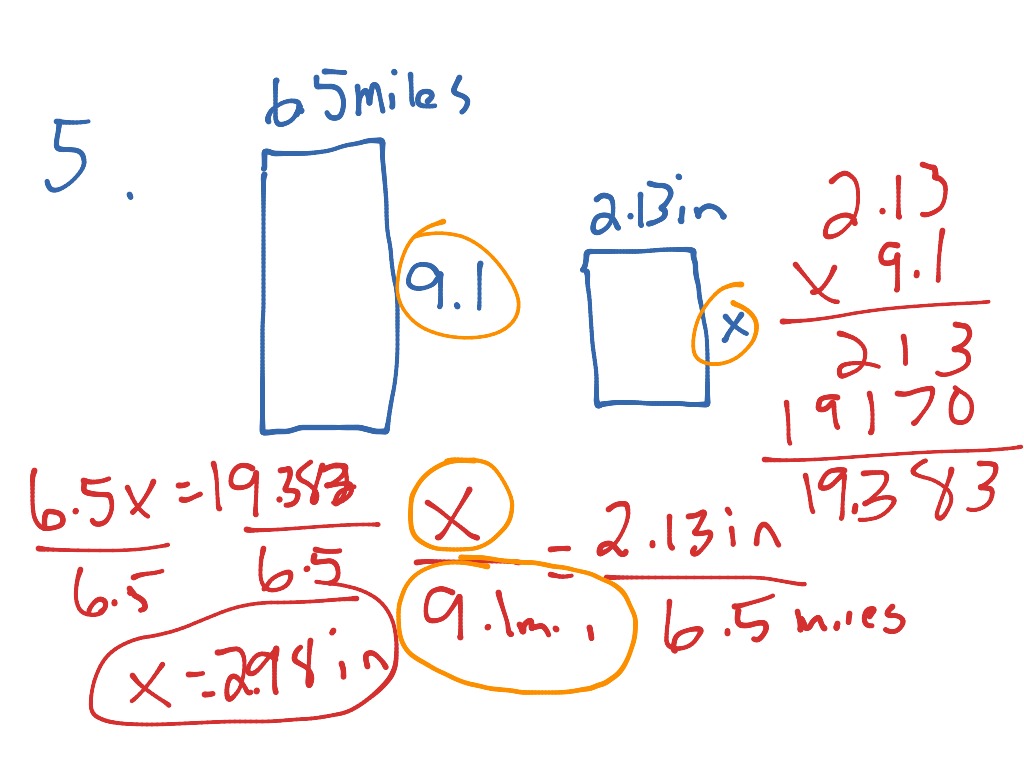 5.
65 miles
9.1
2.13 in
x
2.13
x 9.1
213
19170
19.383
6.5x = 19.383
6.5 6.5
x = 2.98 in
x = 2.13 in
9.1 mi 6.5 miles